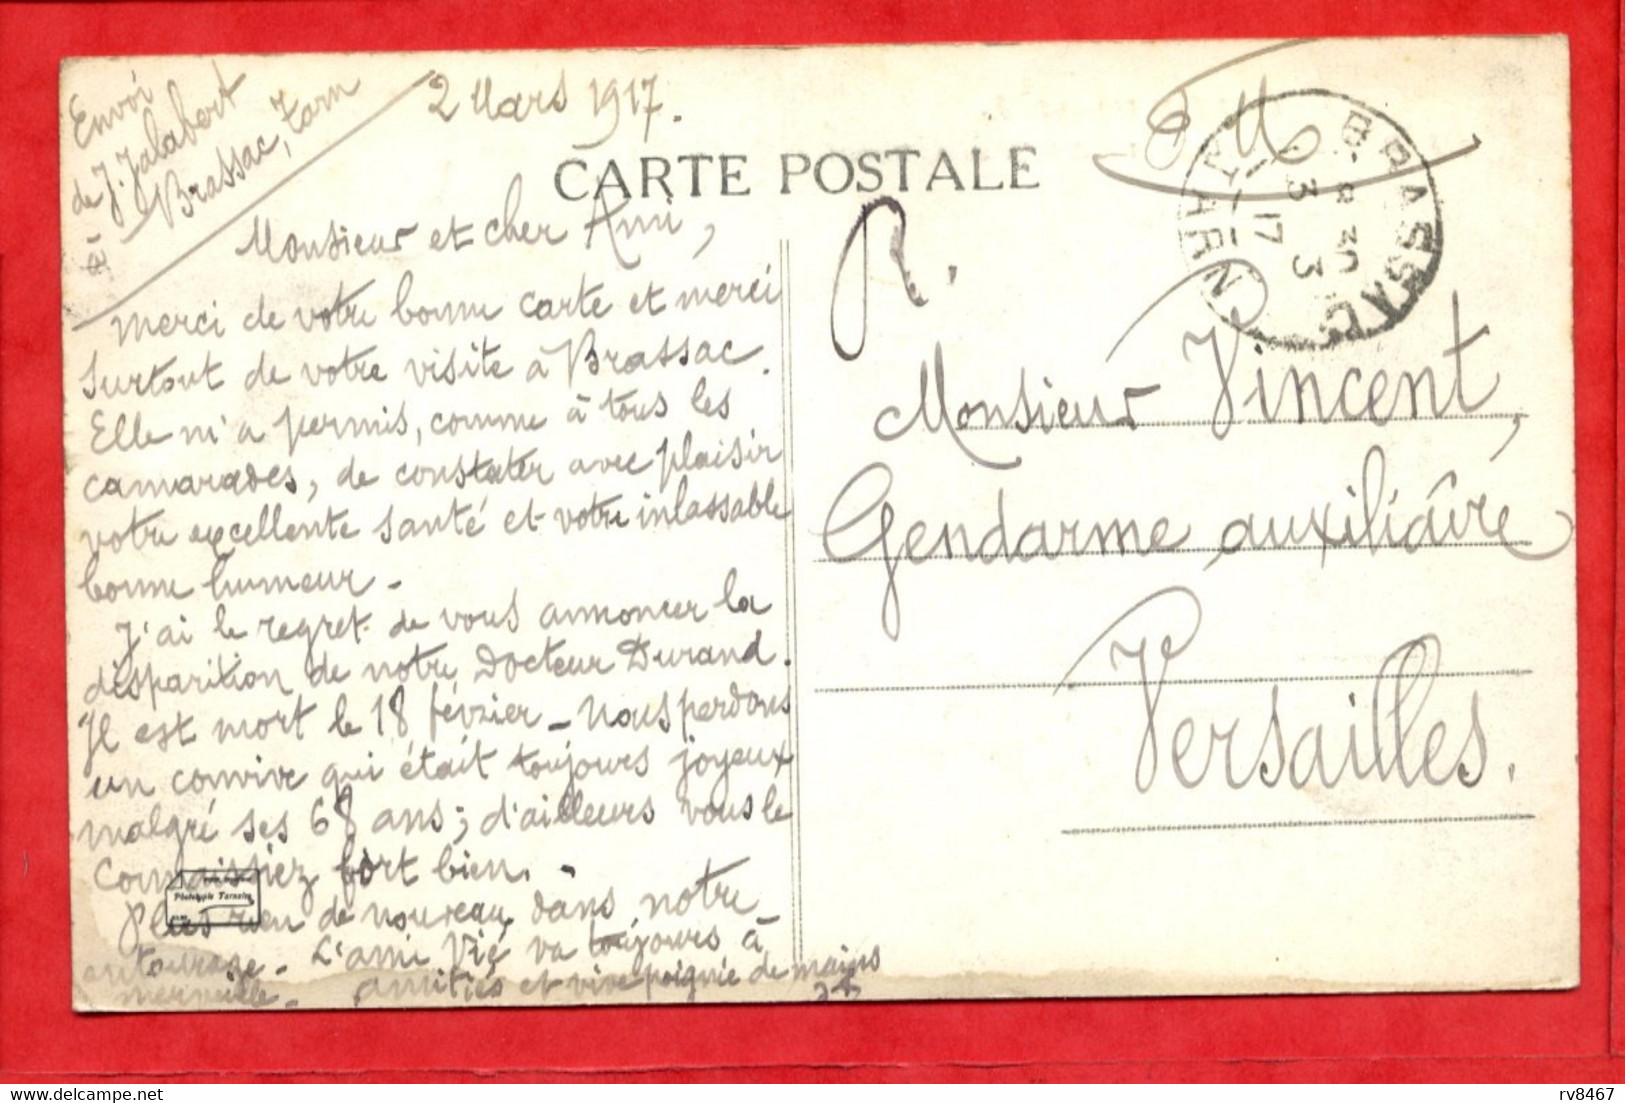 Envoi
de J. Jalabert
à Brassac, Tarn
2 Mars 1917.
CARTE POSTALE
F M
BRASSAC
TARN
8 30
3 3
17
R.
Monsieur et cher Ami,
Merci de votre bonne carte et merci
surtout de votre visite à Brassac.
Elle m'a permis, comme à tous les
camarades, de constater avec plaisir
votre excellente santé et votre inlassable
bonne humeur -
J'ai le regret de vous annoncer la
disparition de notre Docteur Durand.
Il est mort le 18 février - Nous perdons
un convive qui était toujours joyeux
malgré ses 68 ans ; d'ailleurs vous le
connaissiez fort bien. -
Plus rien de nouveau dans notre
entourage - L'ami Vié va toujours à
merveille - amitiés et vive poignée de mains
Phototypie Tarnaise
Monsieur Vincent,
Gendarme auxiliaire
Versailles.
rv8467